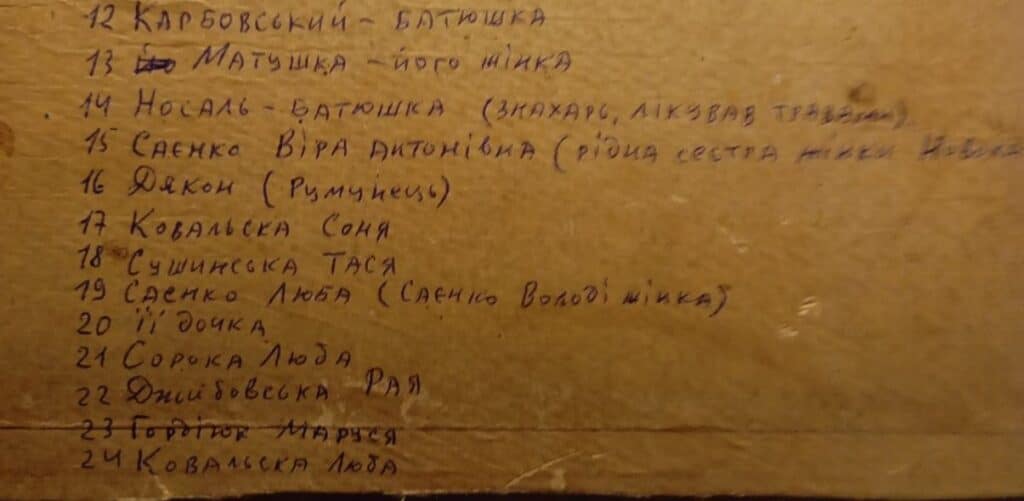 12 Карбовський - батюшка
13 Матушка - його жінка
14 Носаль - батюшка (знахарь, лікував травами)
15 Саєнко Віра Антонівна (рідна сестра жінки
16 Дякон (Румунець)
17 Ковальска Соня
18 Сушинська Тася
19 Саєнко Люба (Саєнко Володі жінка)
20 Її дочка
21 Сорока Люба
22 Джибовська Рая
23 Гордіюк Маруся
24 Ковальска Люба